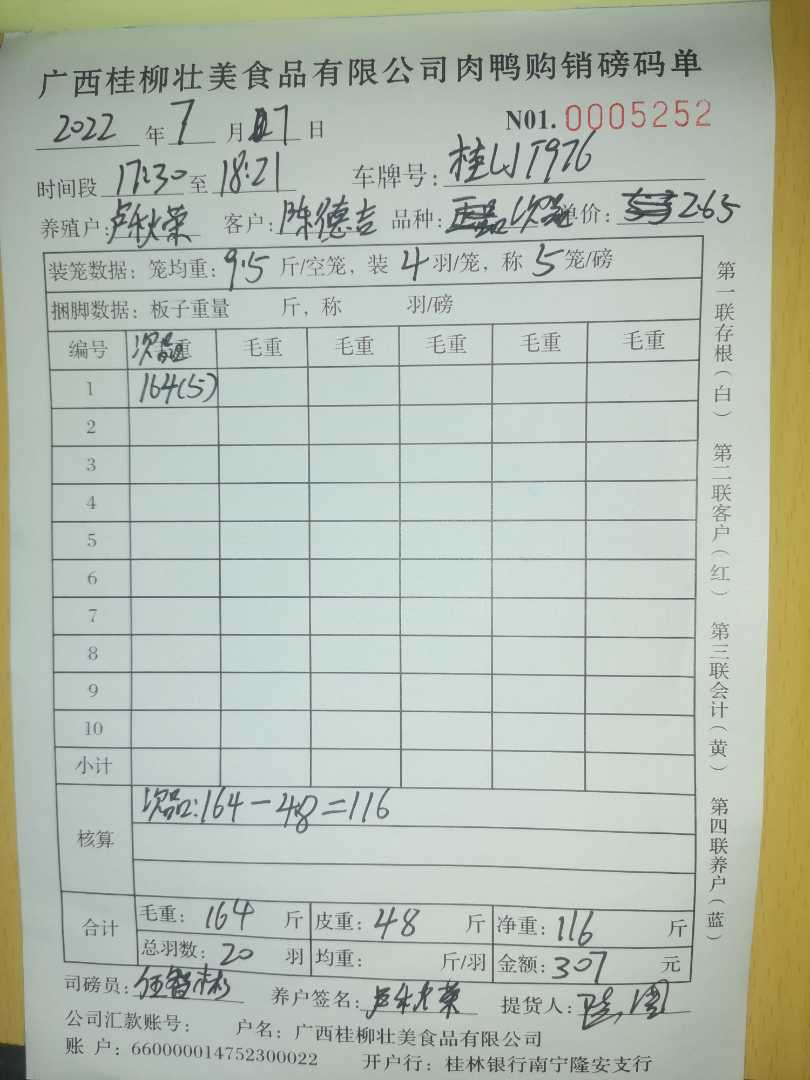 广西桂柳壮美食品有限公司肉鸭购销磅码单
2022年7月17日 N01.0005252
时间段17:30至18:21 车牌号:桂LJT976
养殖户:卢秋荣 客户:陈德吉 品种:次品 单价:2.65
装笼数据:笼均重:9.5斤/空笼,装4羽/笼,称5笼/磅
捆脚数据:板子重量 斤,称 羽/磅
编号 次品 毛重 毛重 毛重 毛重 毛重
1 164(5)
2
3
4
5
6
7
8
9
10
小计
核算 次品:164-48=116
合计 毛重:164斤 皮重:48斤 净重:116斤
总羽数:20羽 均重: 斤/羽 金额:307元
司磅员:伍智彬 养户签名:卢秋荣 提货人:
公司汇款账号: 户名:广西桂柳壮美食品有限公司
账 户:660000014752300022 开户行:桂林银行南宁隆安支行
第一联存根(白) 第二联客户(红) 第三联会计(黄) 第四联养户(蓝)